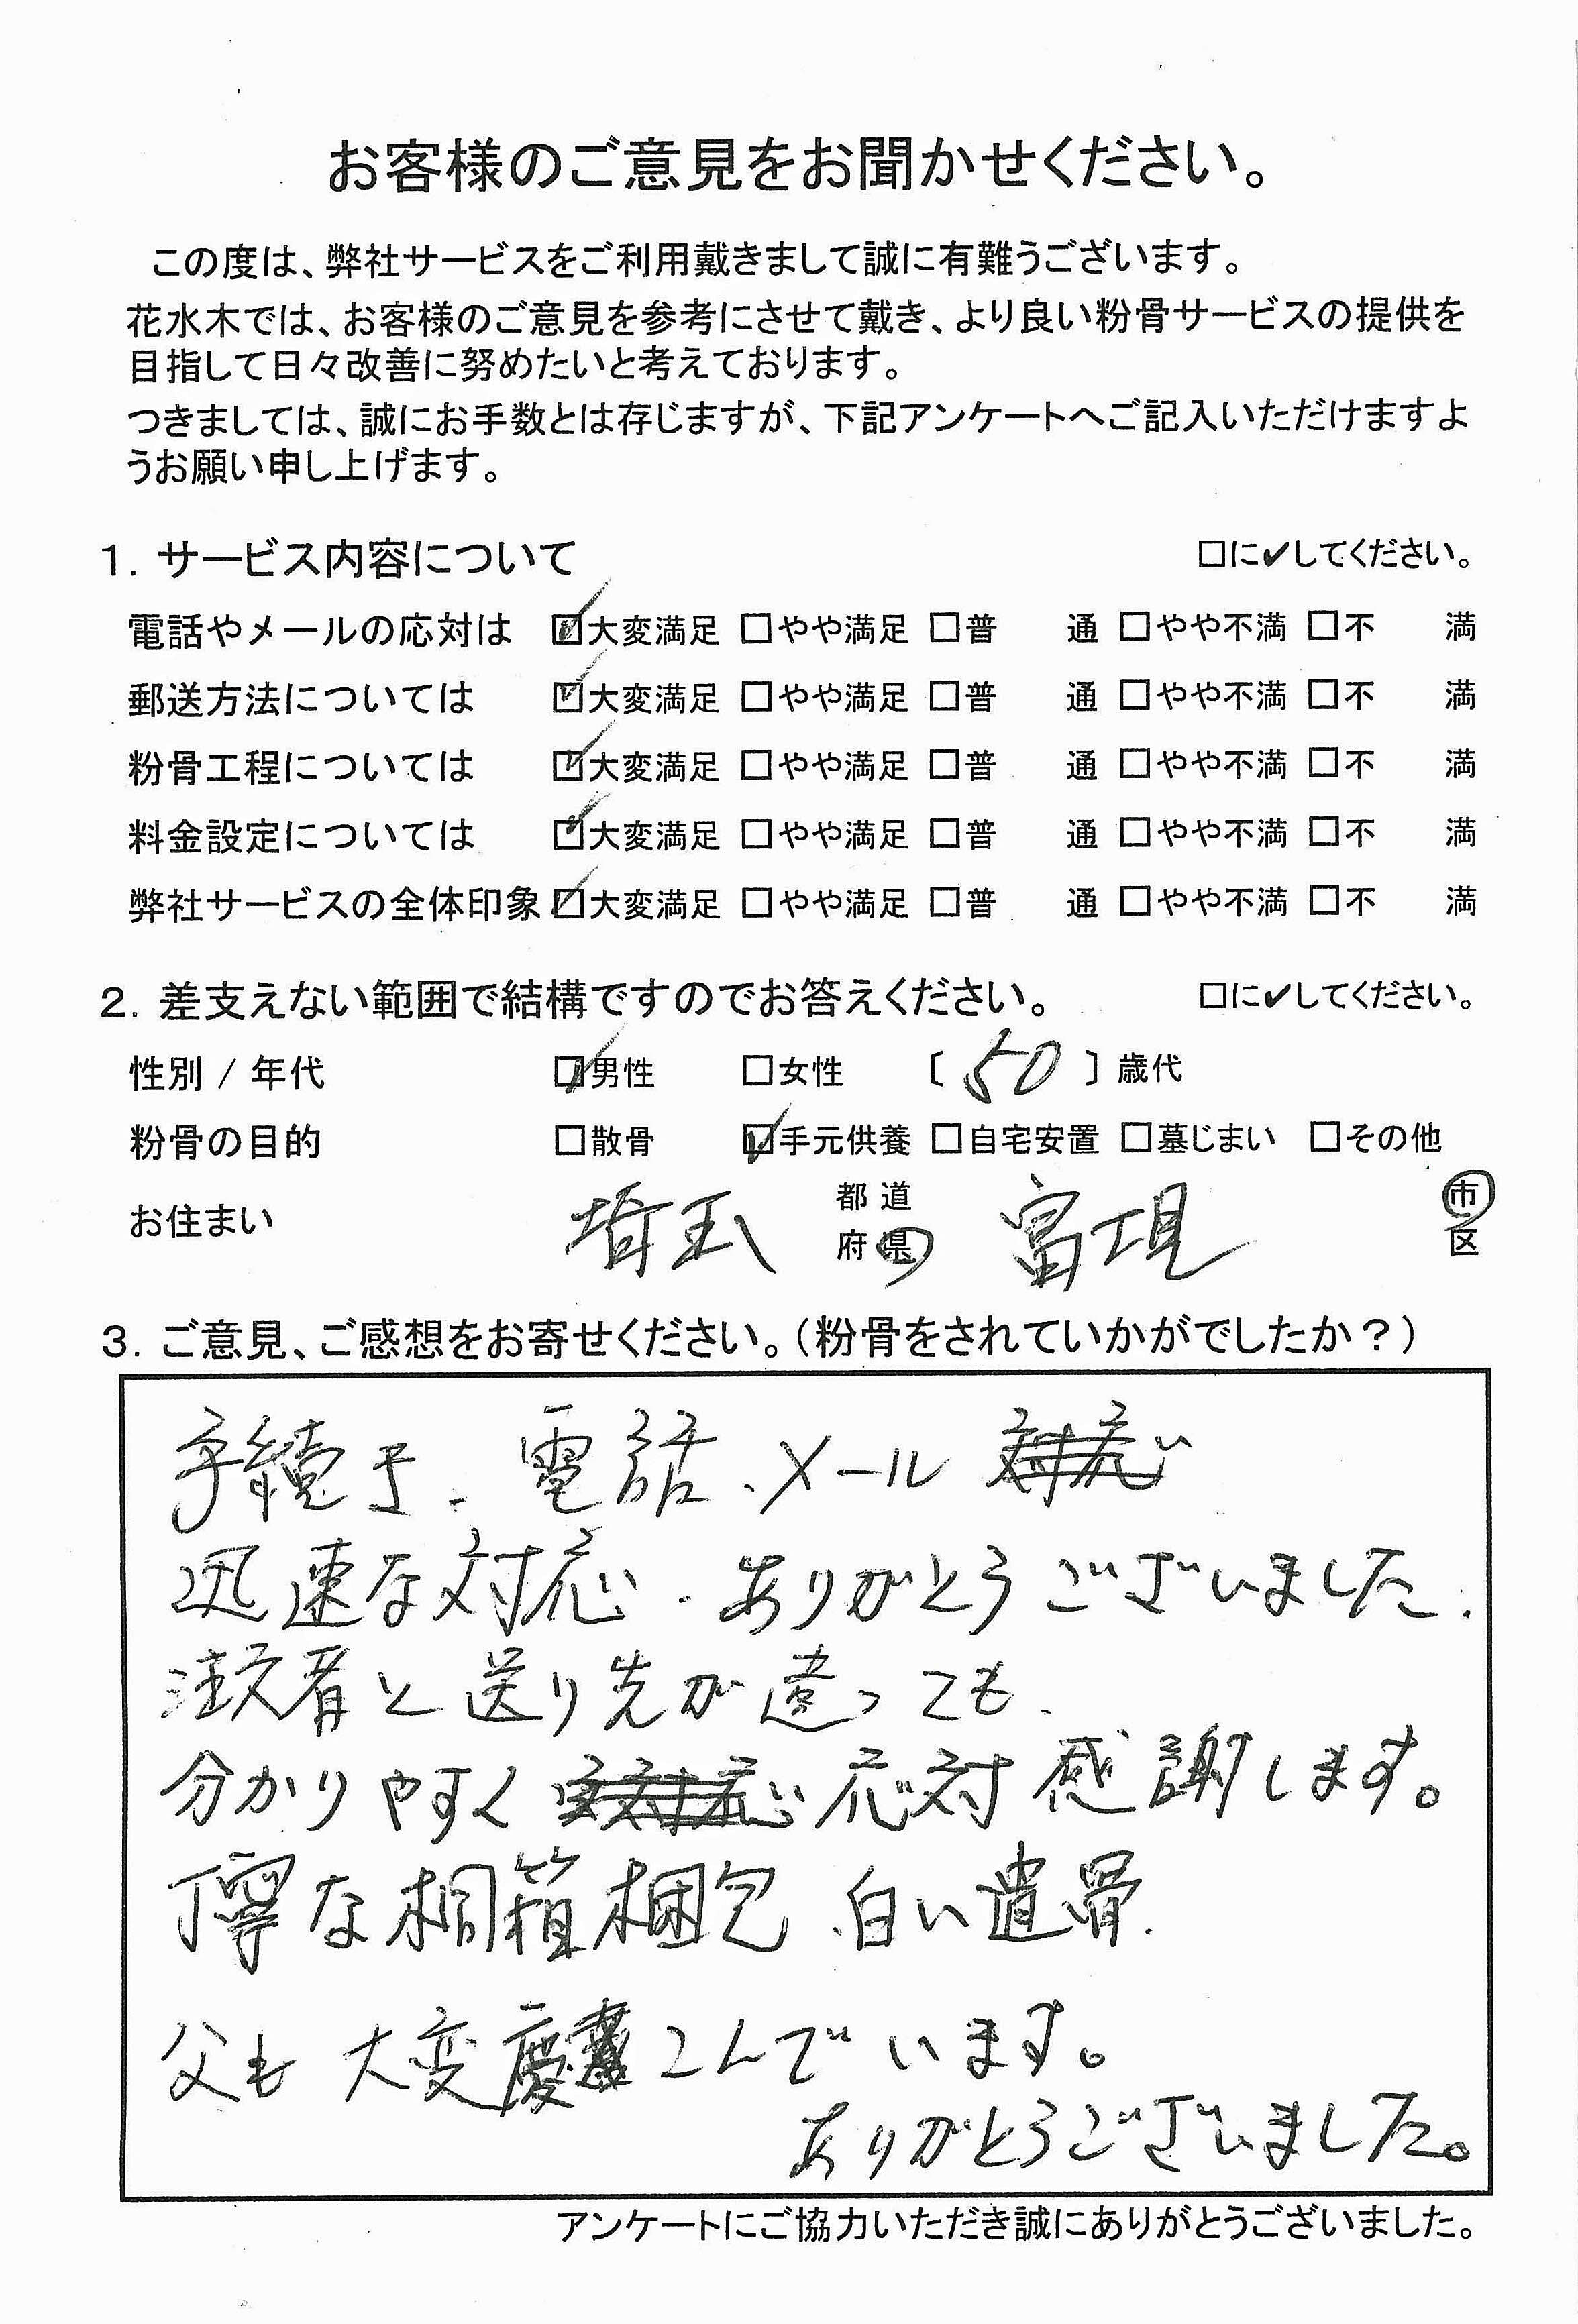 お客様のご意見をお聞かせください。
この度は、弊社サービスをご利用戴きまして誠に有難うございます。
花水木では、お客様のご意見を参考にさせて戴き、より良い粉骨サービスの提供を
目指して日々改善に努めたいと考えております。
つきましては、誠にお手数とは存じますが、下記アンケートへご記入いただけますよ
うお願い申し上げます。
1. サービス内容について □に✔してください。
電話やメールの応対は ☑大変満足 □やや満足 □普 通 □やや不満 □不 満
郵送方法については ☑大変満足 □やや満足 □普 通 □やや不満 □不 満
粉骨工程については ☑大変満足 □やや満足 □普 通 □やや不満 □不 満
料金設定については ☑大変満足 □やや満足 □普 通 □やや不満 □不 満
弊社サービスの全体印象 ☑大変満足 □やや満足 □普 通 □やや不満 □不 満
2. 差支えない範囲で結構ですのでお答えください。 □に✔してください。
性別 / 年代 ☑男性 □女性 〔 50 〕歳代
粉骨の目的 □散骨 ☑手元供養 □自宅安置 □墓じまい □その他
お住まい 埼玉 都道府県 富士見 市区
3. ご意見、ご感想をお寄せください。(粉骨をされていかがでしたか？)
手続き、電話、メール
迅速な対応、ありがとうございました.
注文者と送り先が違っても、
分かりやすく 応対 感謝します。
丁寧な桐箱梱包、白い遺骨、
父も 大変慶こんでいます。
ありがとうございました。
アンケートにご協力いただき誠にありがとうございました。